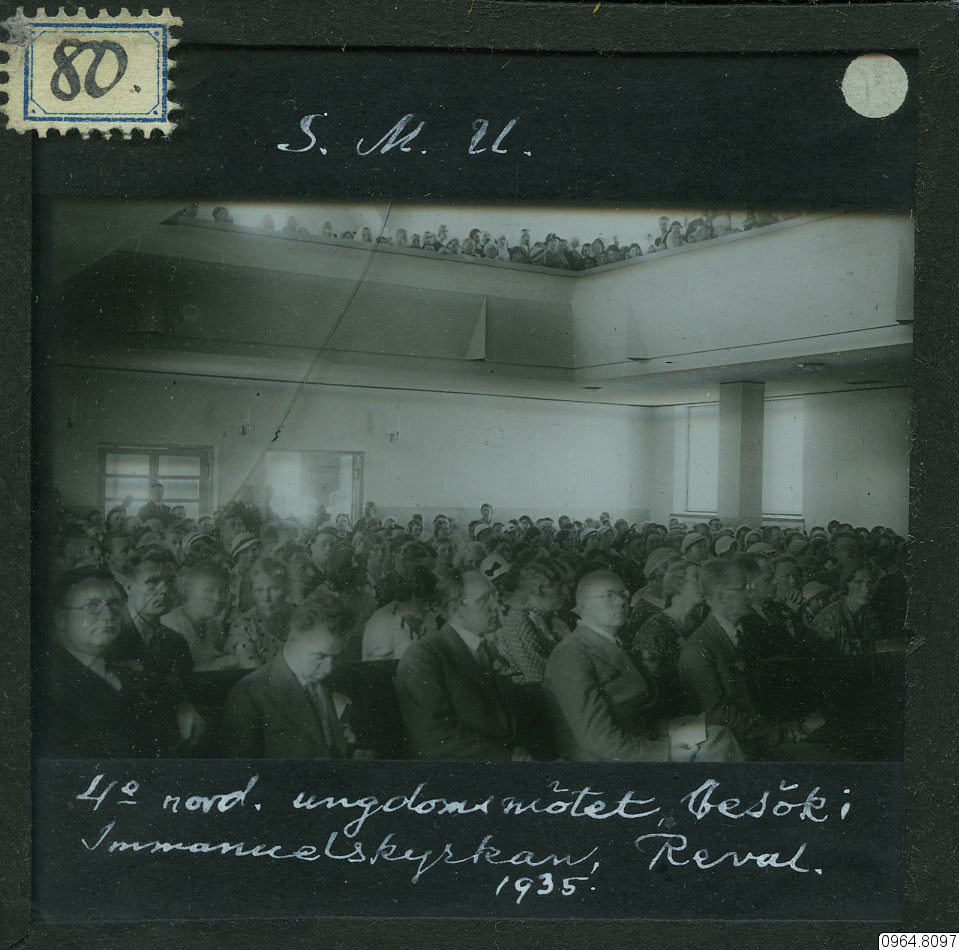 80.
S. M. U.
4e nord. ungdomsmötet, besök i
Immanuelskyrkan, Reval.
1935.
0964.8097